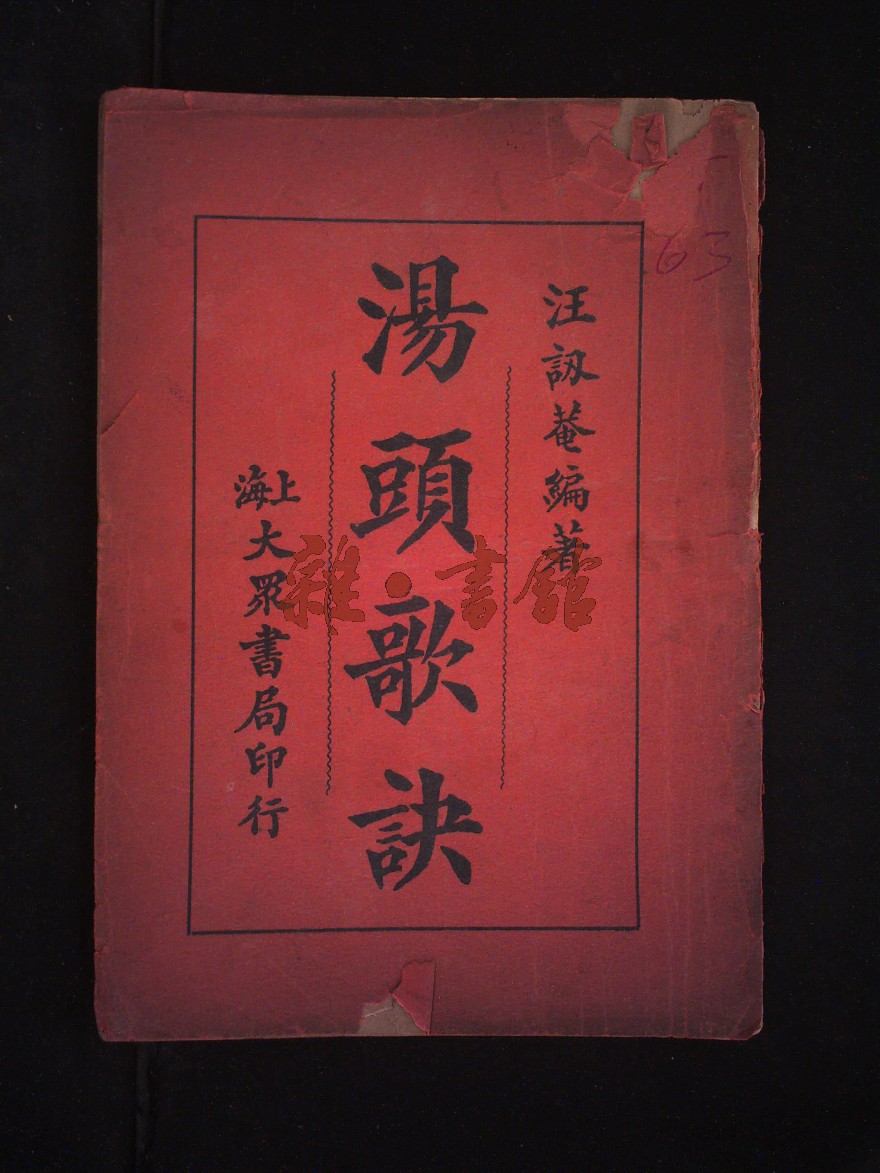 汪訒菴編著
湯頭歌訣
上海大眾書局印行
雜·書館
63